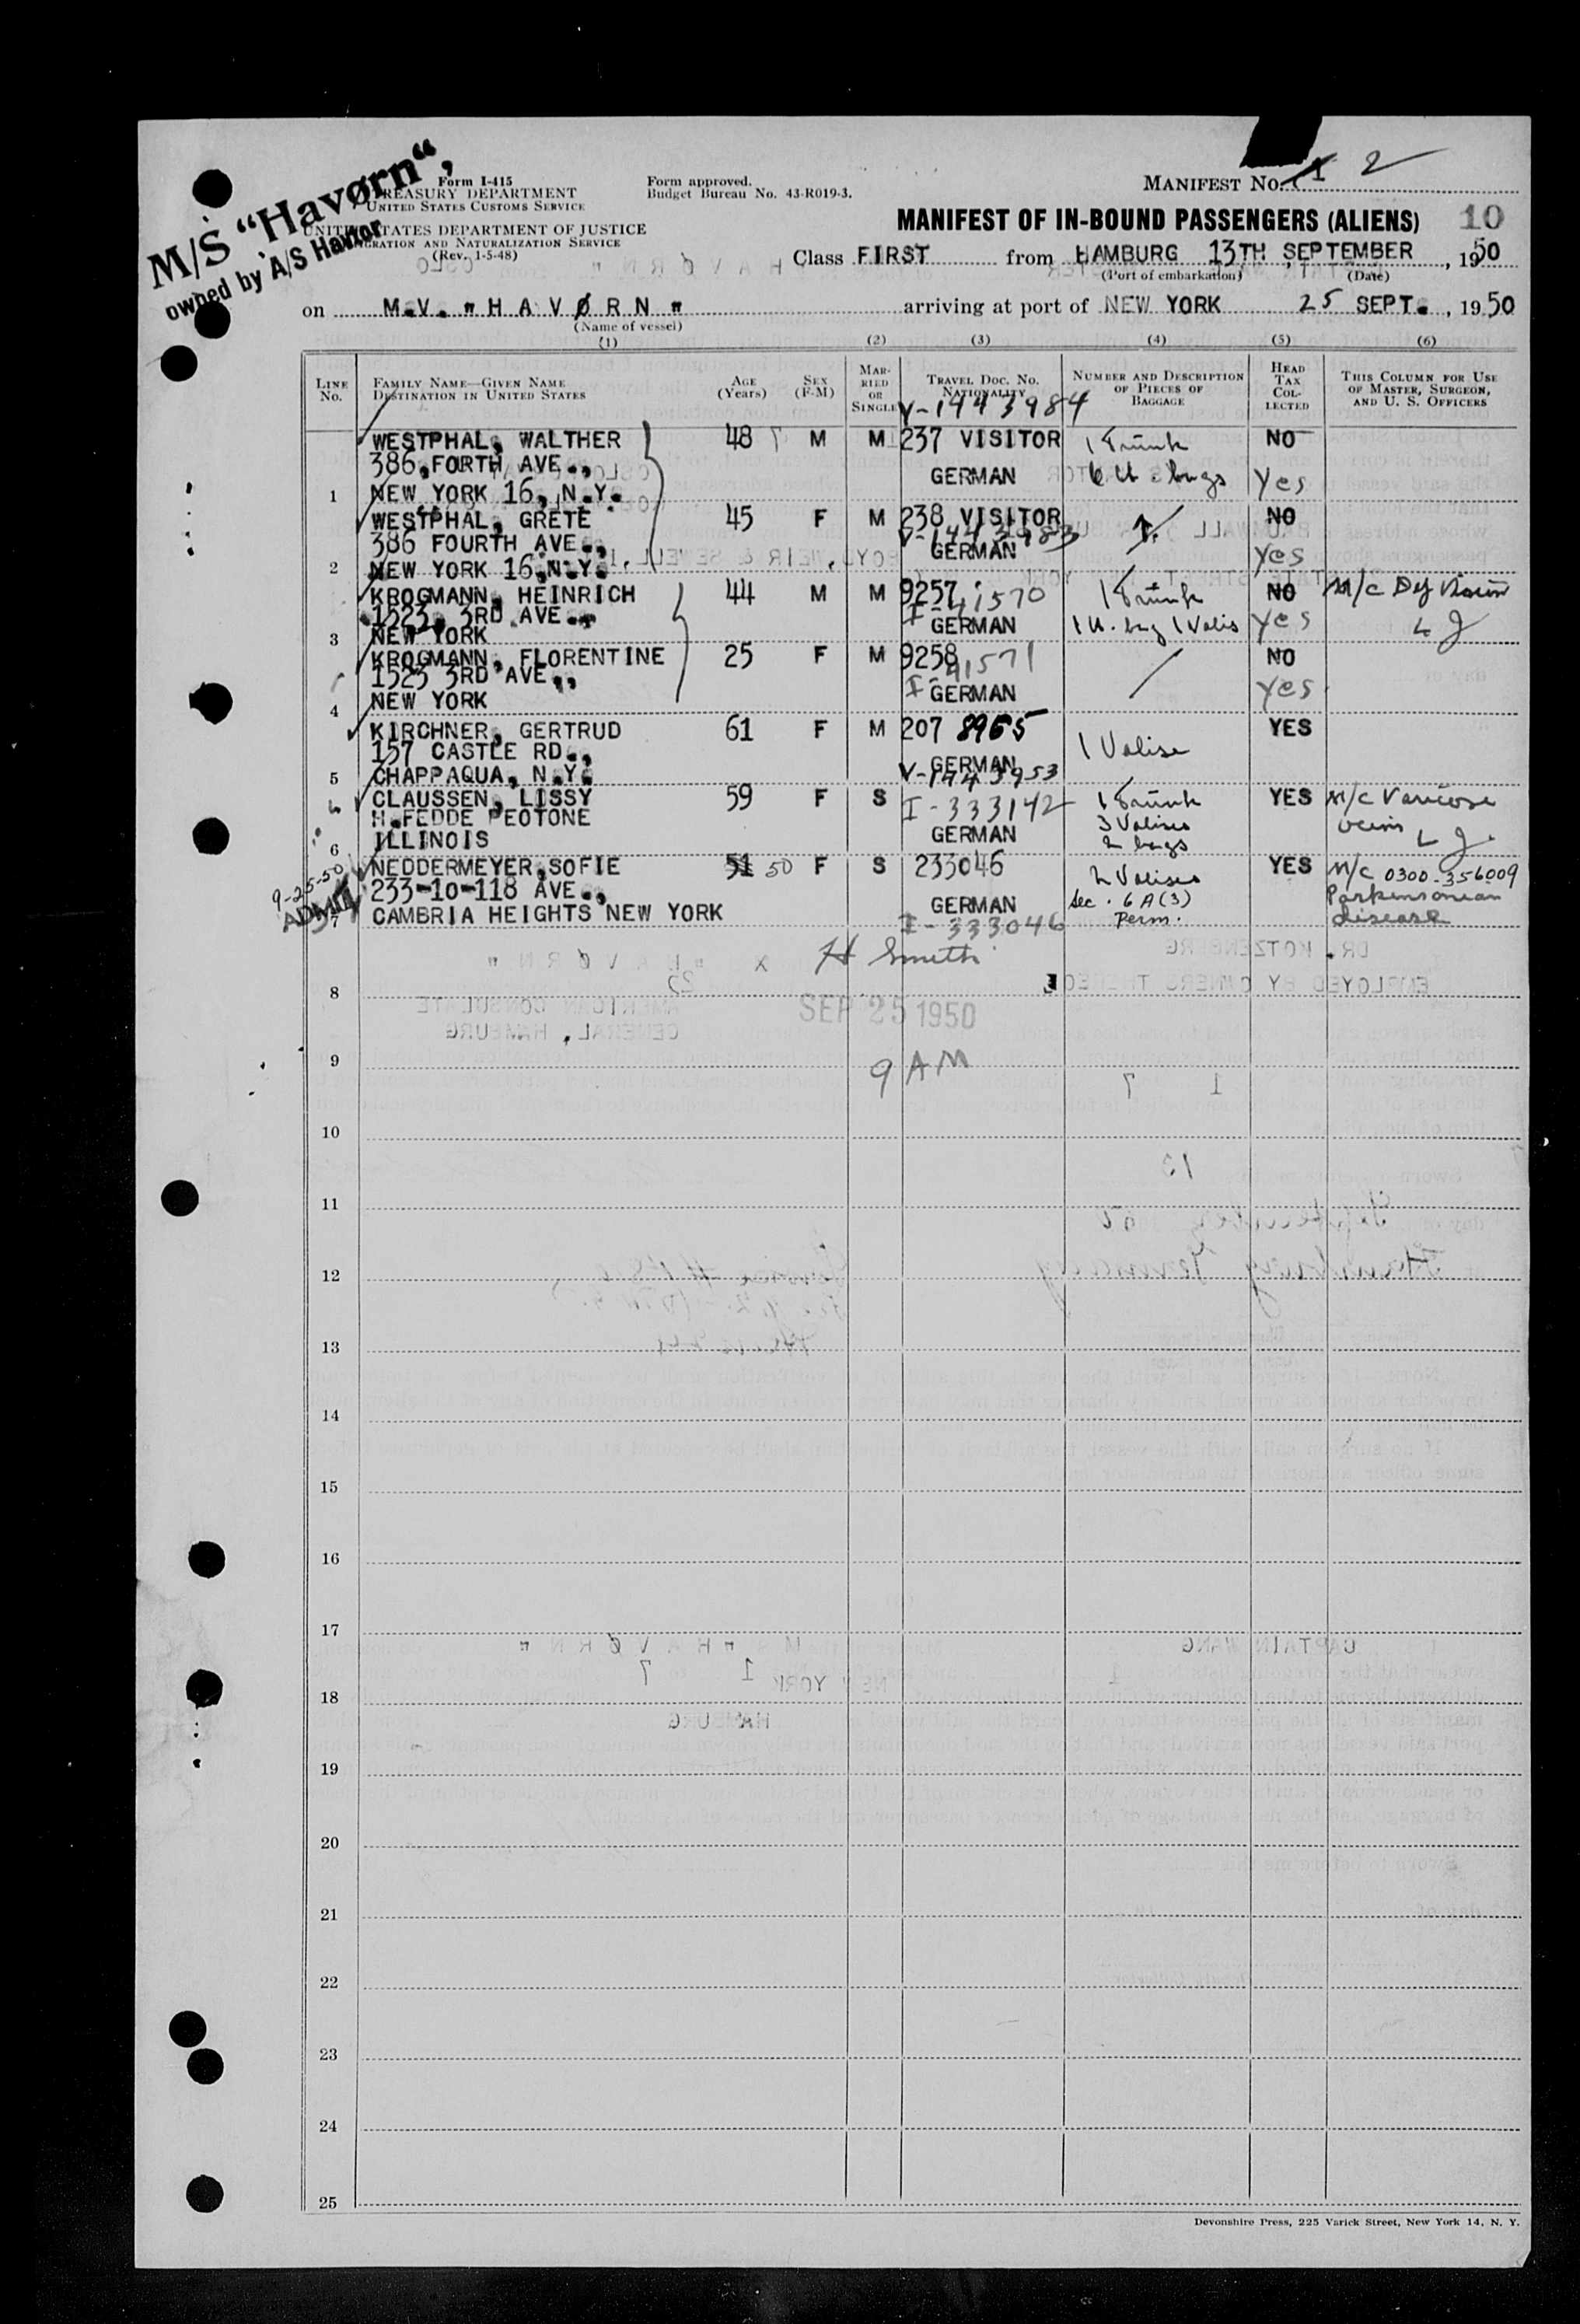 M/S "Havørn",
owned by A/S Havtor
Form I-415
TREASURY DEPARTMENT
UNITED STATES CUSTOMS SERVICE
UNITED STATES DEPARTMENT OF JUSTICE
IMMIGRATION AND NATURALIZATION SERVICE
(Rev. 1-5-48)
Form approved.
Budget Bureau No. 43-R019-3.
MANIFEST NO. 1 2
MANIFEST OF IN-BOUND PASSENGERS (ALIENS) 10
Class FIRST from HAMBURG 13TH SEPTEMBER, 1950
(Port of embarkation) (Date)
on M.V. "HAVØRN" arriving at port of NEW YORK 25 SEPT., 1950
(Name of vessel)
(1) (2) (3) (4) (5) (6)
LINE NO. FAMILY NAME—GIVEN NAME DESTINATION IN UNITED STATES AGE (Years) SEX (F-M) MARRIED OR SINGLE TRAVEL DOC. NO. NATIONALITY NUMBER AND DESCRIPTION OF PIECES OF BAGGAGE HEAD TAX COLLECTED THIS COLUMN FOR USE OF MASTER, SURGEON, AND U. S. OFFICERS
V-1443984
WESTPHAL, WALTHER 48 M M 237 VISITOR 1 Trunk NO
386, FORTH AVE., GERMAN bags Yes
1 NEW YORK 16, N.Y.
WESTPHAL, GRETE 45 F M 238 VISITOR NO
V-1443983
386 FOURTH AVE., GERMAN Yes
2 NEW YORK 16, N.Y.
KROGMANN, HEINRICH 44 M M 9257 1 Trunk NO M/C Def Vision
I-41570
1523, 3RD AVE., GERMAN 1 H. bag 1 Valis Yes
3 NEW YORK
KROGMANN, FLORENTINE 25 F M 9258 NO
I-41571
1523 3RD AVE., GERMAN Yes
4 NEW YORK
KIRCHNER, GERTRUD 61 F M 207 8965 1 Valise YES
157 CASTLE RD., GERMAN
5 CHAPPAQUA, N.Y. V-1443953
CLAUSSEN, LISSY 59 F S I-333142 1 Trunk YES M/C Varicose
H. FEDDE PEOTONE GERMAN 3 Valises veins
6 ILLINOIS 2 bags
NEDDERMEYER, SOFIE 51 50 F S 233046 2 Valises YES M/C 0300-356009
9-25-50
ADMIT
233-10-118 AVE., GERMAN Sec. 6A(3) Parkinsonian
7 CAMBRIA HEIGHTS NEW YORK I-333046 Perm. disease
X H Smith
8 SEP 25 1950
9 9 AM
10
11
12
13
14
15
16
17
18
19
20
21
22
23
24
25
Devonshire Press, 225 Varick Street, New York 14, N. Y.